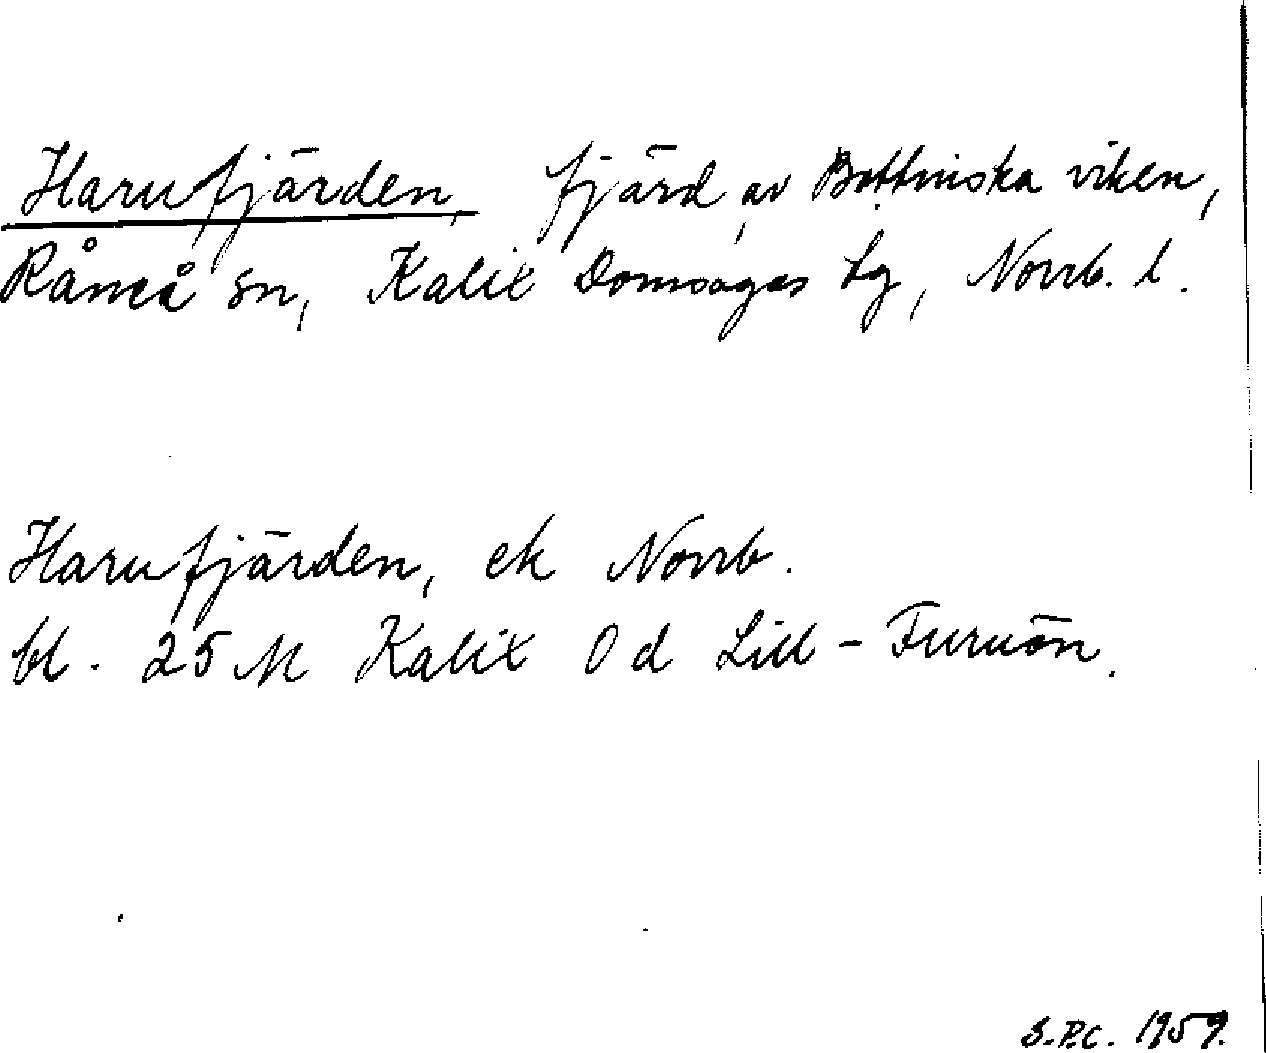 Harufjärden, fjärd av Bottniska viken,
Råneå sn, Kalix Domsagas tg, Norrb. l.
Harufjärden, ek Norrb.
bl. 25 M Kalix O d Lill-Furuön.
S.P.C. 1959.